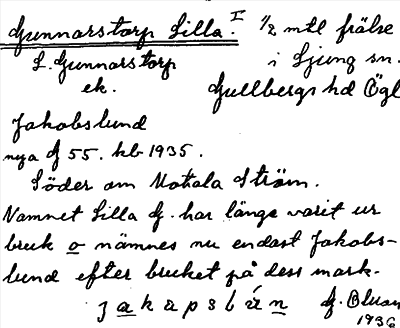 Gunnarstorp Lilla. I 1/2 mtl frälse
L. Gunnarstorp i Ljung sn.
ek. Gullbergs hd Ögl
Jakobslund
nya J 55. kb 1935.
Söder om Motala Ström.
Namnet Lilla G. har länge varit ur
bruk o nämnes nu endast Jakobs-
lund efter bruket på dess mark.
jakapsbán G.
1936